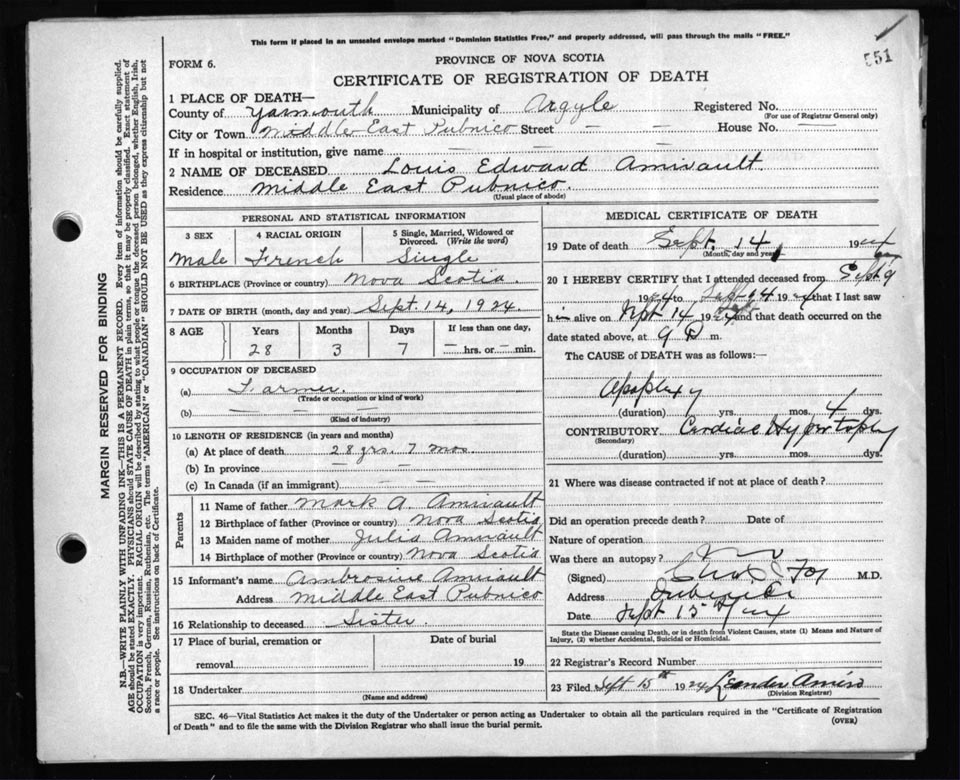 This form if placed in an unsealed envelope marked "Dominion Statistics Free," and properly addressed, will pass through the mails "FREE."
551
FORM 6.
PROVINCE OF NOVA SCOTIA
CERTIFICATE OF REGISTRATION OF DEATH
1 PLACE OF DEATH—
County of Yarmouth Municipality of Argyle Registered No.
(For use of Registrar General only)
City or Town Middle East Pubnico Street — — House No. —
If in hospital or institution, give name — — —
2 NAME OF DECEASED Louis Edward Amirault.
Residence Middle East Pubnico.
(Usual place of abode)
PERSONAL AND STATISTICAL INFORMATION
3 SEX 4 RACIAL ORIGIN 5 Single, Married, Widowed or Divorced. (Write the word)
Male French Single
6 BIRTHPLACE (Province or country) Nova Scotia.
7 DATE OF BIRTH (month, day and year) Sept. 14, 1924.
8 AGE Years Months Days If less than one day,
28 3 7 — hrs. or — min.
9 OCCUPATION OF DECEASED
(a) Farmer.
(Trade or occupation or kind of work)
(b) — — — —
(Kind of industry)
10 LENGTH OF RESIDENCE (in years and months)
(a) At place of death 28 yrs. 7 mos.
(b) In province — —
(c) In Canada (if an immigrant) — —
Parents
11 Name of father Mark A. Amirault
12 Birthplace of father (Province or country) Nova Scotia
13 Maiden name of mother Julia Amirault
14 Birthplace of mother (Province or country) Nova Scotia
15 Informant's name Ambrosine Amirault
Address Middle East Pubnico
16 Relationship to deceased Sister
17 Place of burial, cremation or removal Date of burial 19
18 Undertaker
(Name and address)
MEDICAL CERTIFICATE OF DEATH
19 Date of death Sept. 14, 1924
(Month, day and year)
20 I HEREBY CERTIFY that I attended deceased from Sept 9
1924 to Sept 14 1924 that I last saw
h— alive on Sept 14 1924 and that death occurred on the
date stated above, at 9 P m.
The CAUSE of DEATH was as follows:—
Apoplexy
(duration) yrs. mos. 4 dys.
CONTRIBUTORY Cardiac Hypertrophy
(Secondary)
(duration) yrs. mos. dys.
21 Where was disease contracted if not at place of death?
Did an operation precede death? Date of
Nature of operation
Was there an autopsy? no
(Signed) Chas. Fox M.D.
Address Pubnico
Date Sept 15th/24
State the Disease causing Death, or in death from Violent Causes, state (1) Means and Nature of Injury, (2) whether Accidental, Suicidal or Homicidal.
22 Registrar's Record Number
23 Filed Sept 15th 1924 Leander Amiro
(Division Registrar)
SEC. 46—Vital Statistics Act makes it the duty of the Undertaker or person acting as Undertaker to obtain all the particulars required in the "Certificate of Registration
of Death" and to file the same with the Division Registrar who shall issue the burial permit. (OVER)
MARGIN RESERVED FOR BINDING
N.B.—WRITE PLAINLY WITH UNFADING INK—THIS IS A PERMANENT RECORD. Every item of information should be carefully supplied.
AGE should be stated EXACTLY. PHYSICIANS should STATE CAUSE OF DEATH in plain terms, so that it may be properly classified. Exact statement of
OCCUPATION is very important. RACIAL ORIGIN will be described by stating to what people or tongue the deceased person belonged, whether English, Irish,
Scotch, French, German, Russian, Ruthenian, etc. The terms "AMERICAN" or "CANADIAN" SHOULD NOT BE USED as they express citizenship but not
a race or people. See instructions on back of Certificate.